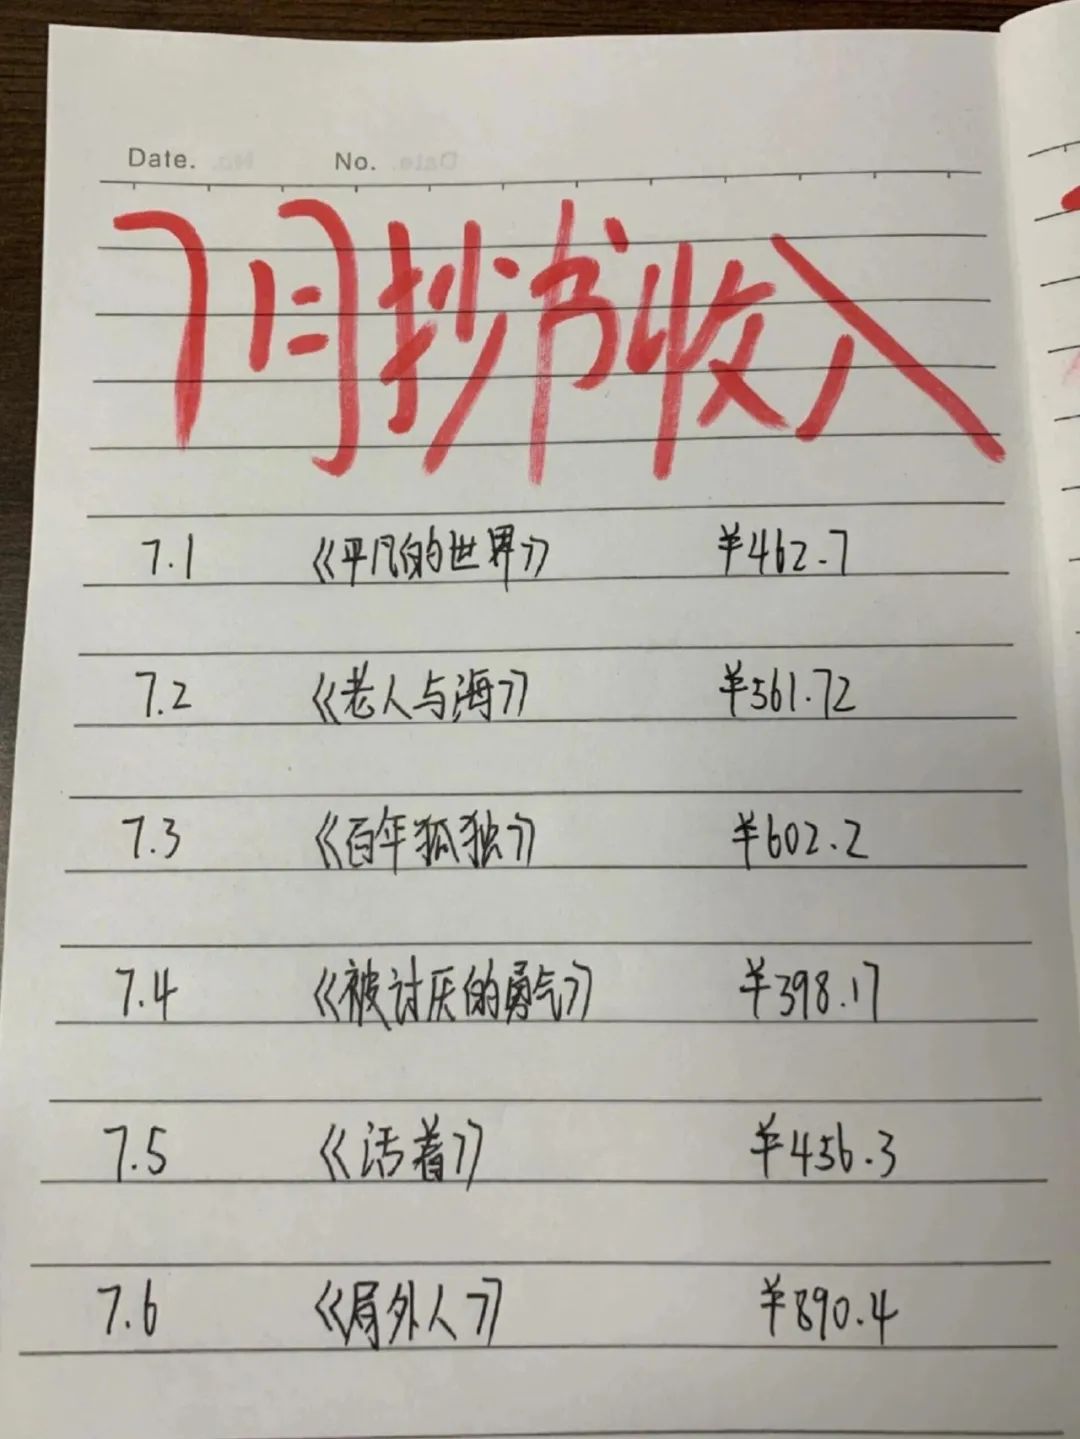 Date. No.
7月抄书收入
7.1 《平凡的世界》 ¥462.7
7.2 《老人与海》 ¥561.72
7.3 《百年孤独》 ¥602.2
7.4 《被讨厌的勇气》 ¥398.17
7.5 《活着》 ¥456.3
7.6 《局外人》 ¥890.4